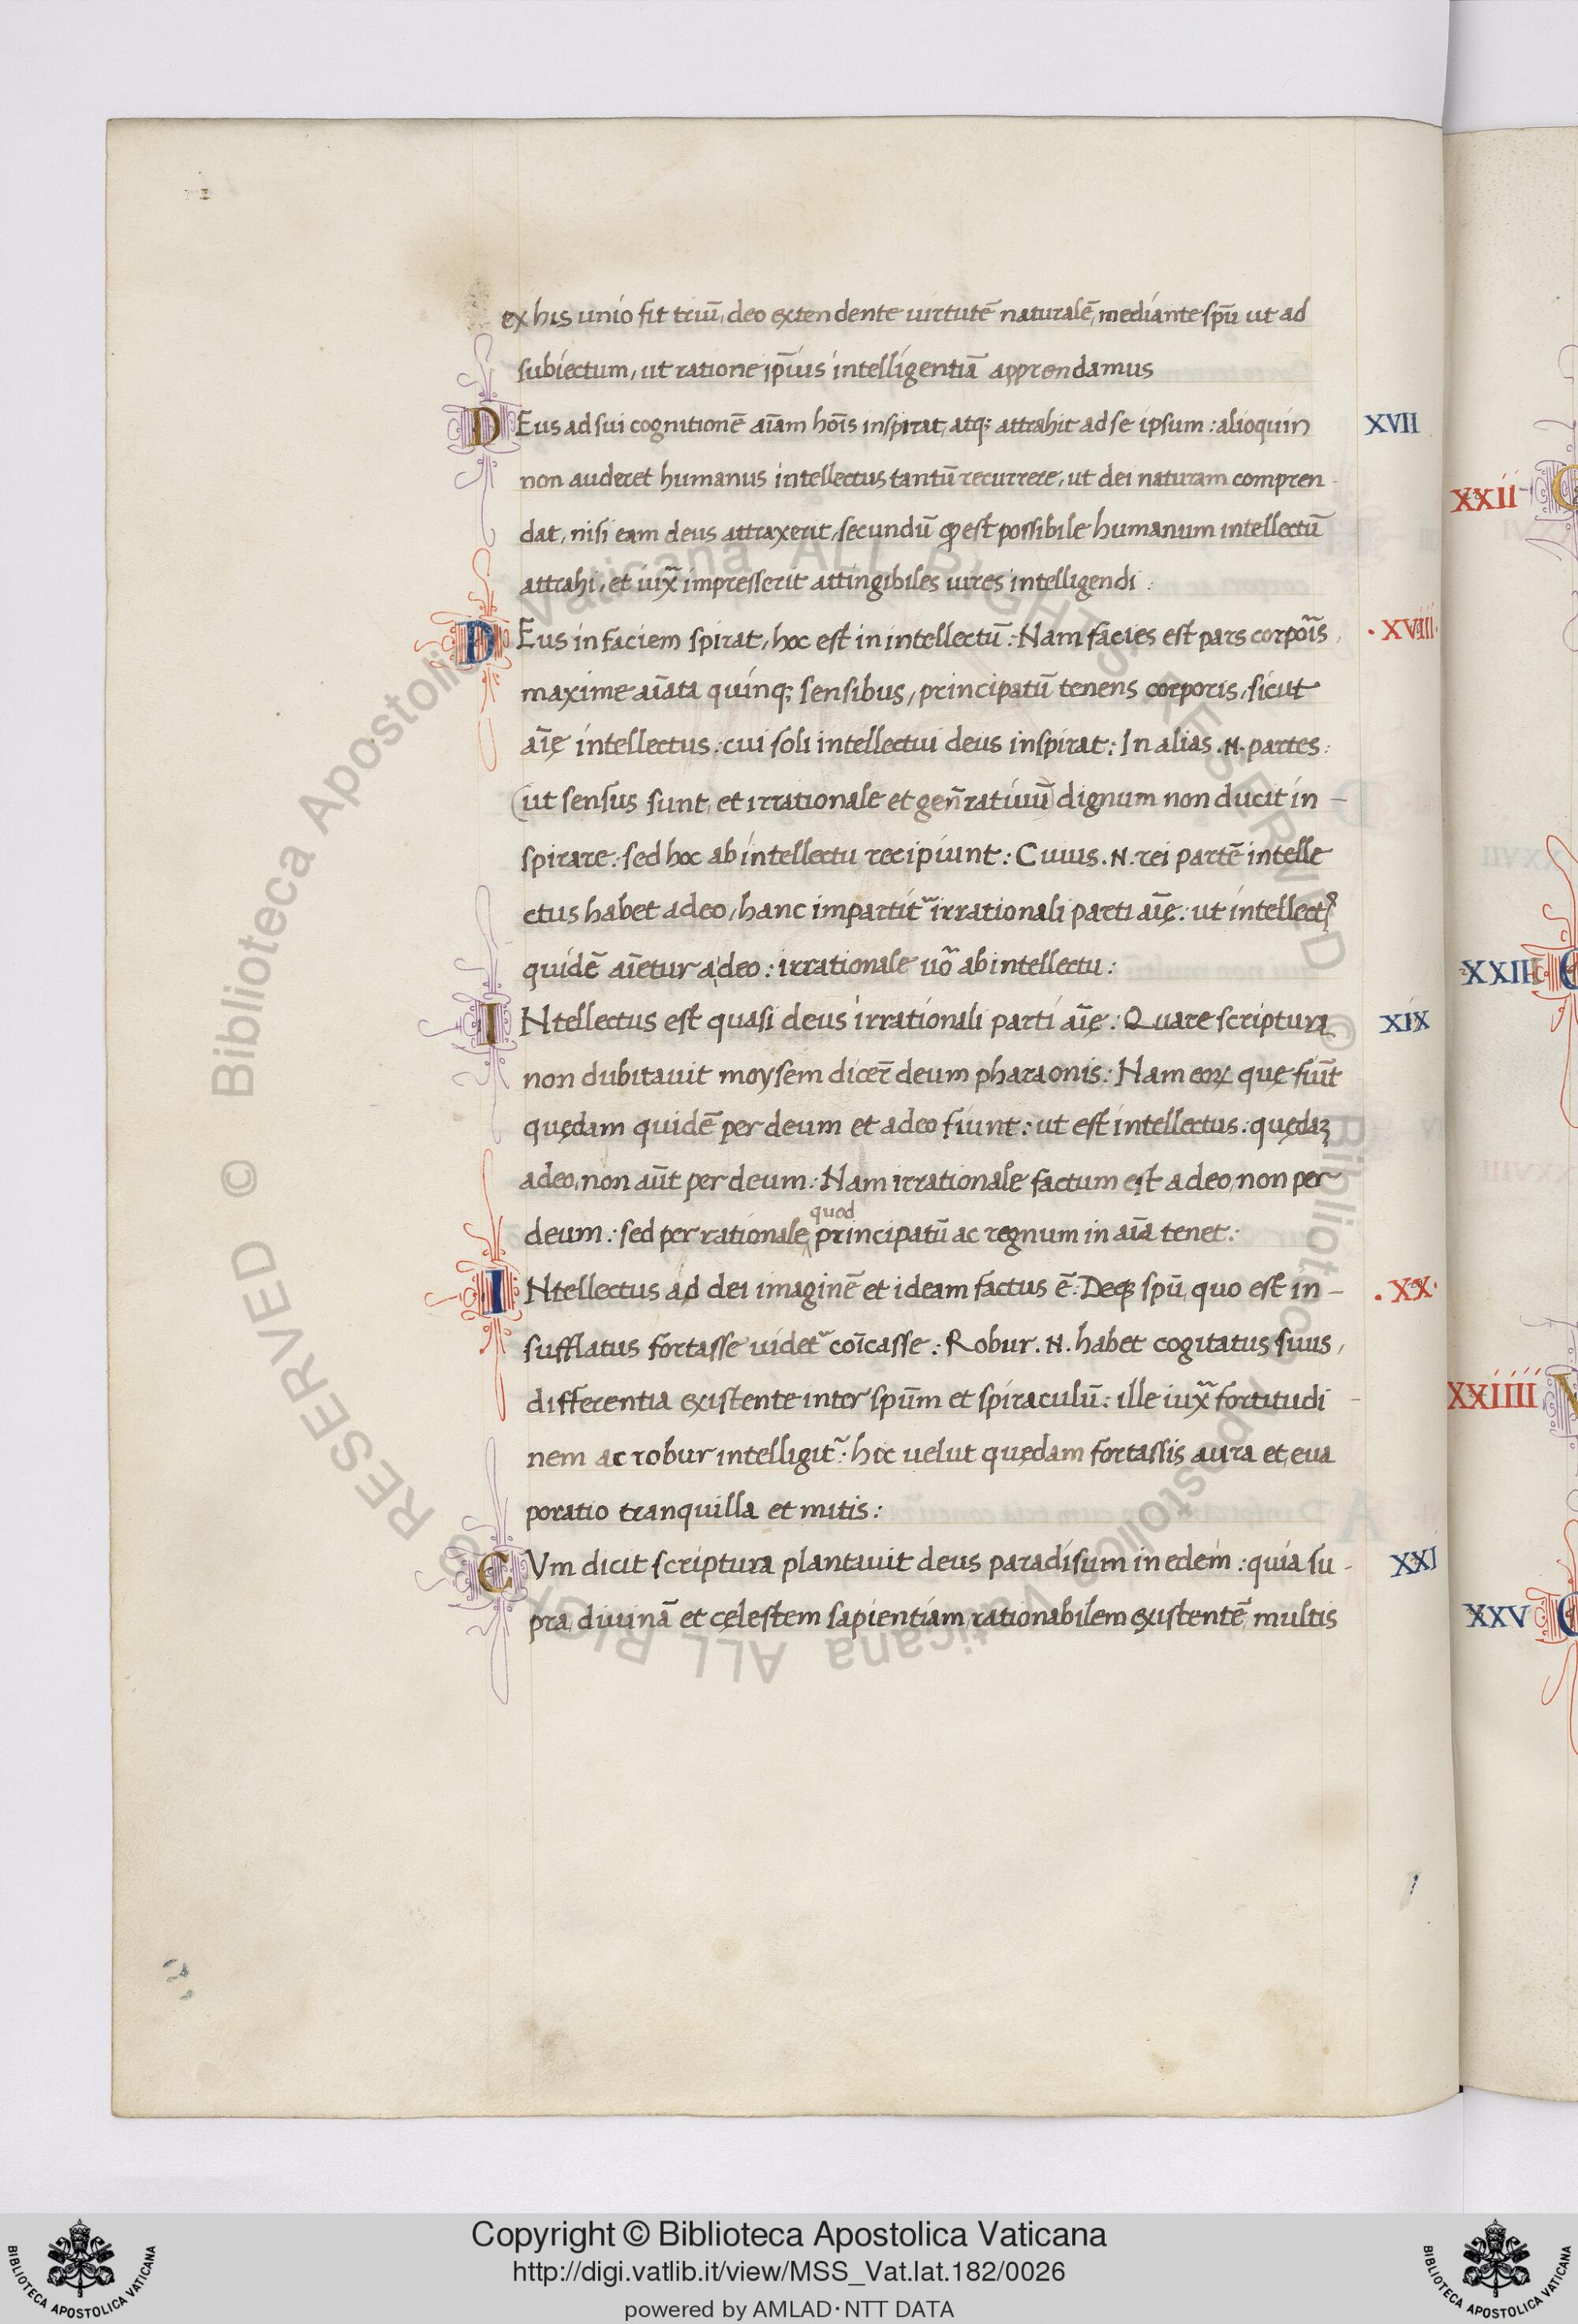 ex his unio fit triū, deo extendente uirtutē naturalē, mediante spū ut ad
subiectum, ut ratione ip̄ius intelligentiā apprendamus
DEus ad sui cognitionē aīam hoīs inspirat, atq; attrahit ad se ipsum : alioquin XVII
non auderet humanus intellectus tantū recurrere, ut dei naturam compren
dat, nisi eam deus attraxerit, secundū ꝙ est possibile humanum intellectū
attrahi, et iux̄ impresserit attingibiles uires intelligendi :
DEus in faciem spirat, hoc est in intellectū : Nam facies est pars corpoīs, · XVIII ·
maxime aīata quinq; sensibus, principatū tenens corporis, sicut
aīę intellectus : cui soli intellectui deus inspirat : In alias .N. partes :
(ut sensus sunt, et irrationale et geñratiuū) dignum non ducit in –
spirare : sed hoc ab intellectu recipiunt : Cuius .N. rei partē intelle
ctus habet a deo, hanc impartit᷑ irrationali parti aīę : ut intellectꝰ
quidē aīetur a deo : irrationale uo᷑ ab intellectu :
INtellectus est quasi deus irrationali parti aīę : Quare scriptura XIX
non dubitauit moysem dicer̄ deum pharaonis : Nam eoꝝ quę fiūt
quędam quidē per deum et a deo fiunt : ut est intellectus : quędaꝫ
a deo, non aūt per deum : Nam irrationale factum est a deo, non per
quod
deum : sed per rationale principatū ac regnum in aīa tenet :
INtellectus ad dei imaginē et ideam factus ē : Deqꝫ spū, quo est in – · XX ·
sufflatus fortasse uidet᷑ coīcasse : Robur .N. habet cogitatus suus,
differentia existente inter spūm et spiraculū : ille iux̄ fortitudi –
nem ac robur intelligit᷑ : hic uelut quędam fortassis aura et, eua
poratio tranquilla et mitis :
CVm dicit scriptura plantauit deus paradisum in edem : quia su – XXI
pra, diuinā et cęlestem sapientiam, rationabilem existentē, multis
XXII
XXIII
XXIIII
XXV
Copyright © Biblioteca Apostolica Vaticana
http://digi.vatlib.it/view/MSS_Vat.lat.182/0026
powered by AMLAD·NTT DATA
BIBLIOTECA APOSTOLICA VATICANA
BIBLIOTECA APOSTOLICA VATICANA
© Biblioteca Apostolica Vaticana ALL RIGHTS RESERVED © Biblioteca Apostolica Vaticana ALL RIGHTS RESERVED